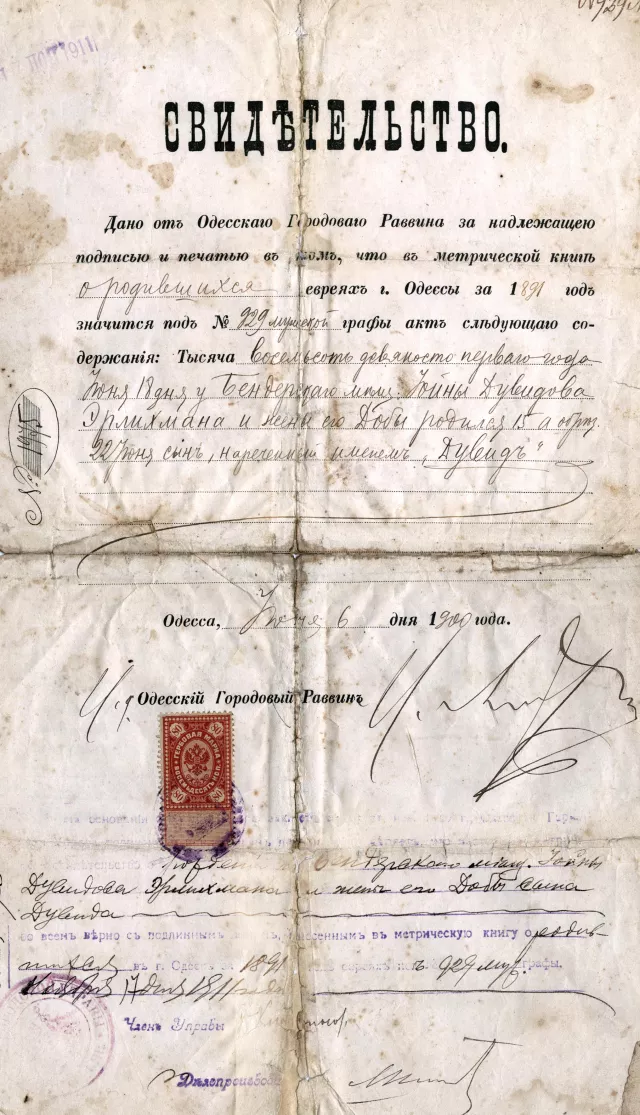 СВИДѢТЕЛЬСТВО.
Дано отъ Одесскаго Городоваго Раввина за надлежащею
подписью и печатью въ томъ, что въ метрической книгѣ
о родившихся евреяхъ г. Одессы за 1891 годъ
значится подъ № 929 мужской графы актъ слѣдующаго со-
держанія: Тысяча восемьсотъ девяносто перваго года
Іюня 18 дня у Бендерскаго мѣщ. Іойны Дувидова
Эрлихмана и жена его Добы родился
22 Іюня сынъ, нареченный именемъ „Дувидъ“
№ 1945
Одесса, Іюня 6 дня 1900 года.
И. д. Одесскій Городовый Раввинъ
80 80
ГЕРБОВАЯ МАРКА
ВОСЕМЬДЕСЯТЪ КОП.
80 80
основаніи
Бендерскаго мѣщ. Іойны
Дувидова Эрлихмана и жены его Добы сына
Дувида
во всемъ вѣрно съ подлиннымъ внесеннымъ въ метрическую книгу о родив-
шихся въ г. Одессѣ 1891 929 муж. графы.
Января 17 дня 1911 года
Членъ Управы
Дѣлопроизвод